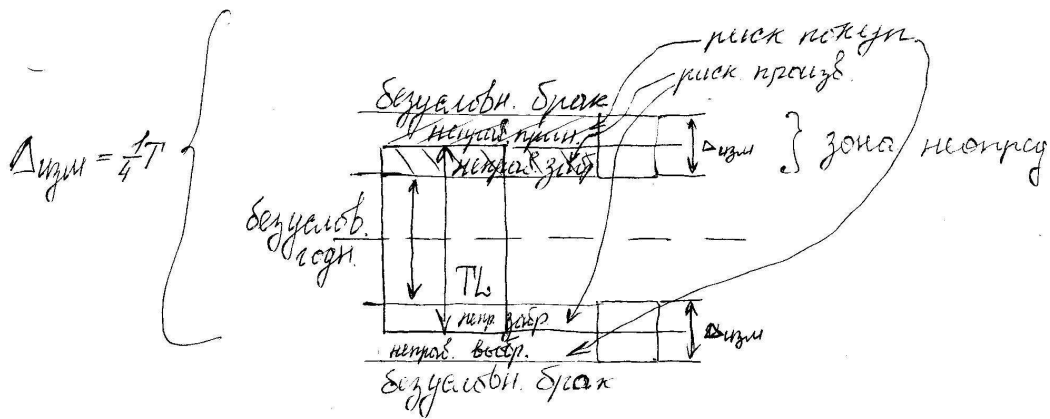 риск покуп.
риск произв.
безусловн. брак
неправ. прин.
неправ. забр.
Δизм
} зона неопред
Δизм = 1/4 T {
безуслов.
годн.
TL
непр. забр.
неправ. выбр.
Δизм
безусловн. брак